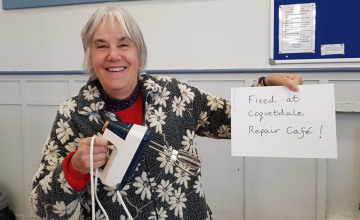 Fixed at
Coquetdale
Repair Café !